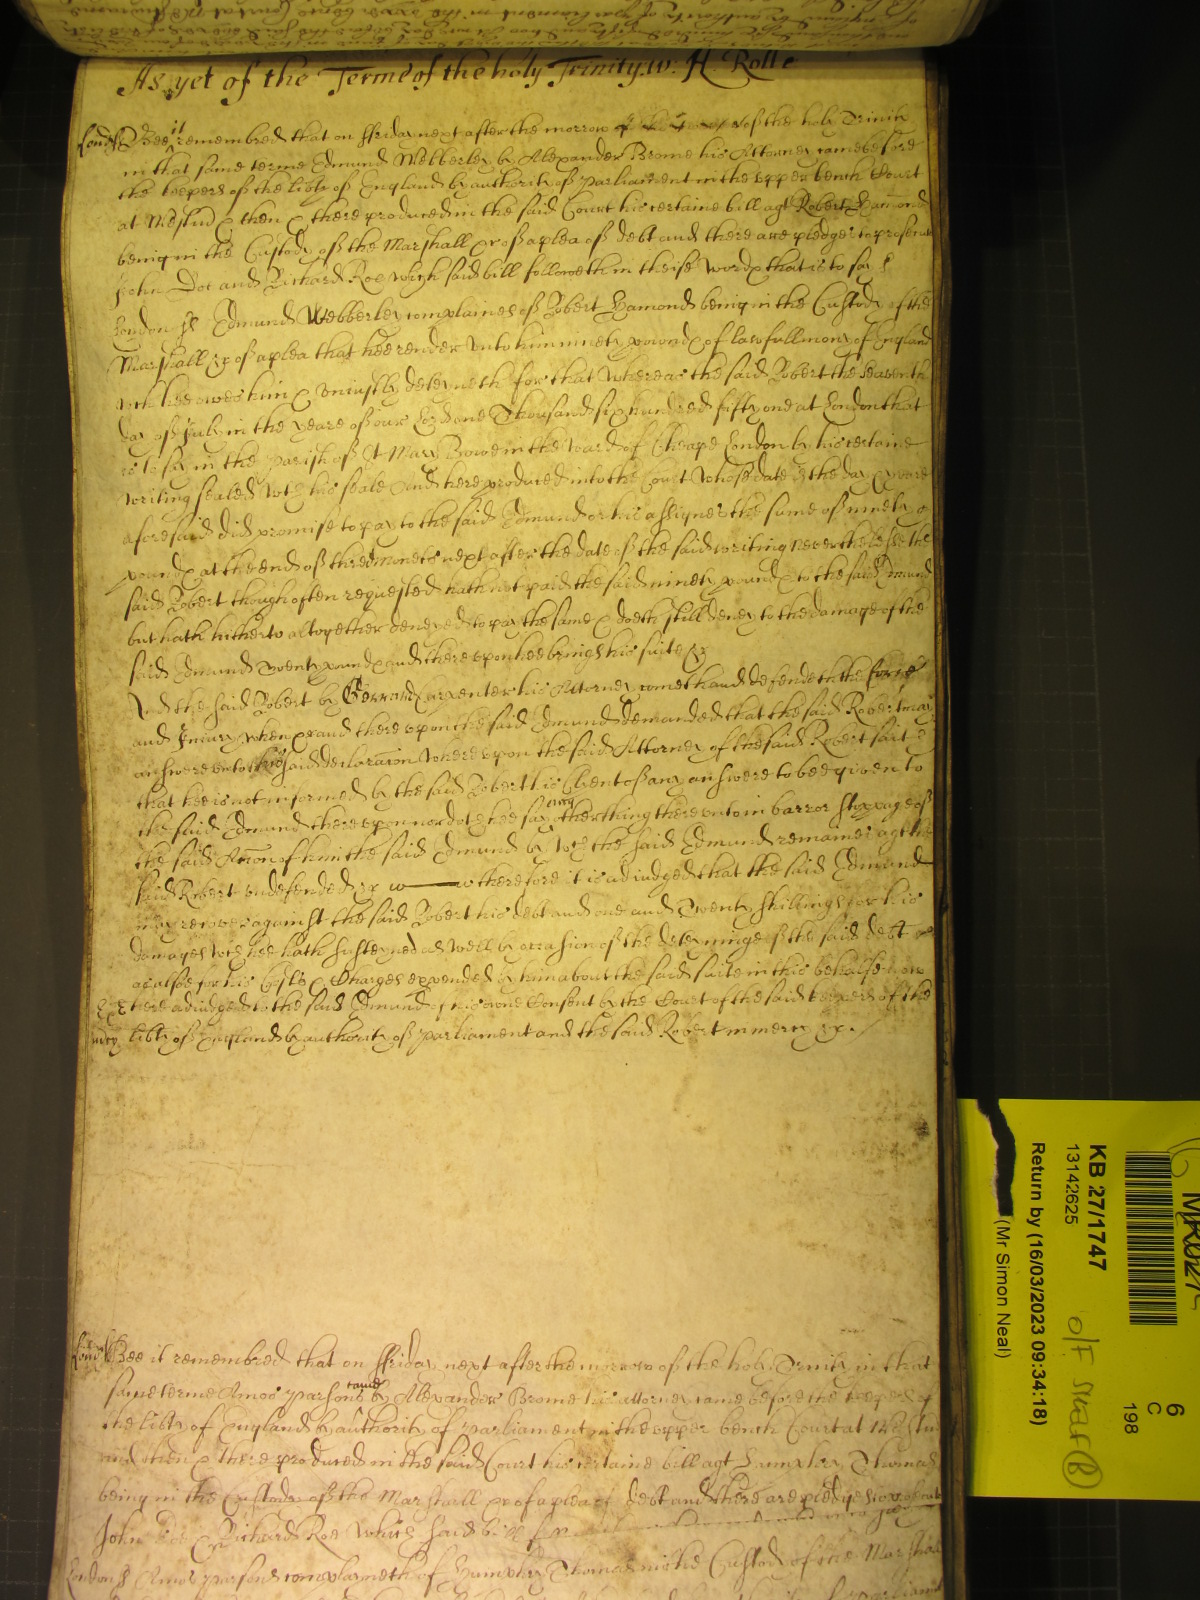 As yet of the Terme of the holy Trinity w: H. Rolle
Lond ss Bee it remembred that on ffriday next after the morrow of the holy Trinity
in that same terme Edmund Webberley by Alexander Brome his Attorney came before
the keepers of the lib~ty of England by authority of parliament in the upper bench Court
at Westm~ & then & there produced in the said Court his certaine bill agt Robert Hamond
being in the Custody of the Marshall &c of a plea of debt and there are pledges to prosecute
John Doe and Richard Roe which said bill followeth in theise words that is to say ss
London ss Edmund Webberley complaines of Robert Hamond being in the Custody of the
Marshall &c of a plea that hee render unto him ninety pounds of lawfull mony of England
wch hee owes him & uniustly deteyneth for that Whereas the said Robert the seaventh
day of July in the yeare of our Lord one Thousand six hundred fifty one at London that
is to say in the parish of St Mary Bowe in the ward of Cheape London by his certaine
writing sealed with his seale And here produced into the Court Whose date is the day & yeare
aforesaid did promise to pay to the said Edmund or his assignes the sume of ninety
pounds at the end of three moneths next after the date of the said writing neverthelesse the
said Robert though often requested hath not paid the said ninety pounds to the said Edmund
but hath hitherto altogether denyed to pay the same & doeth still deney to the damage of the
said Edmund twenty pounds and thereupon hee brings his suite &c
And the said Robert by Gerrard Carpenter his Attorney cometh and defendeth the force
and Iniury when &c and thereupon the said Edmund demanded that the said Robert may
answere unto his said declaracion Whereupon the said Attorney of the said Robert saith
that hee is not informed by the said Robert his Client of any answere to bee given to
the said Edmund thereupon nor doth hee say any other thing thereunto in barr or stoppage of
the said Accion of him the said Edmund by wch the said Edmund remaines agt the
said Robert undefended &c w therefore it is adiudged that the said Edmund
may recover against the said Robert his debt and one and Twenty shillings for his
damages wch hee hath susteyned as well by occasion of the deteyninge of the said debt
as alsoe for his Costs & Charges expended by him about the said suite in this behalfe now
here adiudged to the said Edmund of his owne Consent by the Court of the said keepers of the
mercy lib~ty of England by authority of parliament and the said Robert in mercy &c.
Lond ss Bee it remembred that on ffriday next after the morrow of the holy Trinity in that
same terme Amos Parsons came by Alexander Brome his attorney came before the keepers of
the lib~ty of England by authority of parliament in the upper bench Court at Westm~
and then & there produced in the said Court his certaine bill agt Humphry Thomas
being in the Custody of the Marshall &c of a plea of debt and there are pledges to prosecute
John Doe & Richard Roe Which said bill
London ss Amos Parsons complaineth of Humphry Thomas in the Custody of the Marshall
KB 27/1747
13142625
Return by (16/03/2023 09:34:18)
(Mr Simon Neal)
6
C
198
O/F